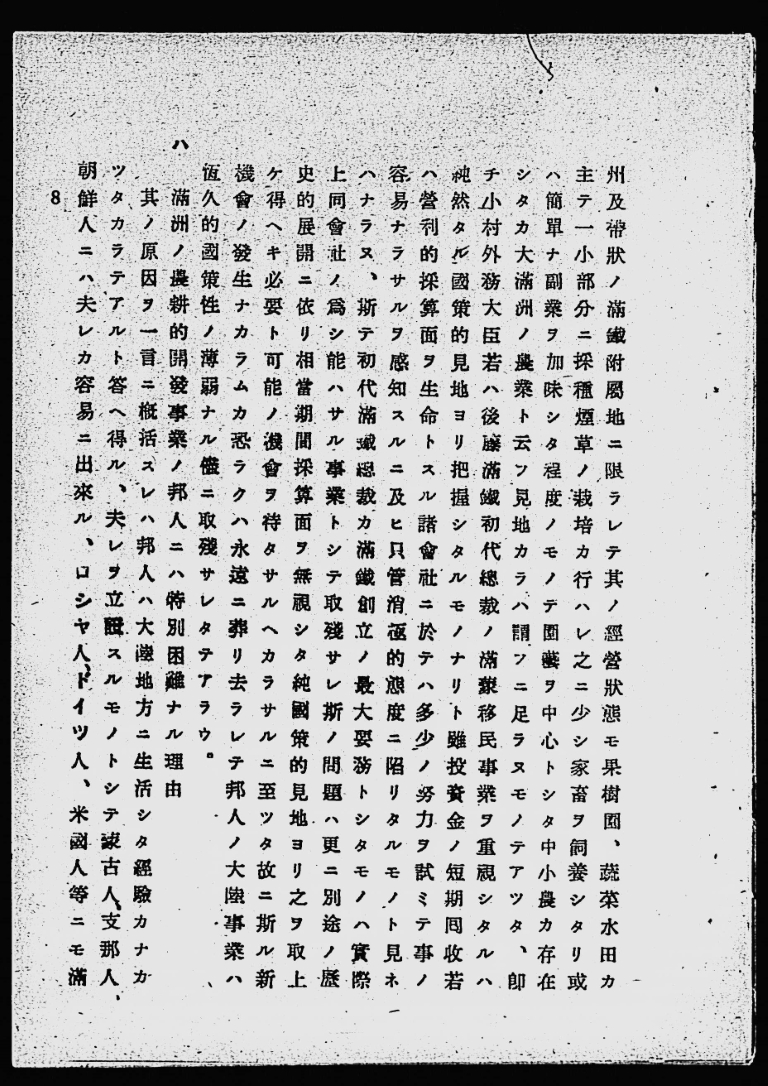 州及帶狀ノ滿鐵附屬地ニ限ラレテ其ノ經營狀態モ果樹園、蔬菜水田カ
主テ一小部分ニ採種煙草ノ栽培カ行ハレ之ニ少シ家畜ヲ飼養シタリ或
ハ簡單ナ副業ヲ加味シタ程度ノモノテ園藝ヲ中心トシタ中小農カ存在
シタカ大滿洲ノ農業ト云フ見地カラハ謂フニ足ラヌモノテアツタ、卽
チ小村外務大臣若ハ後藤滿鐵初代總裁ノ滿蒙移民事業ヲ重視シタルハ
純然タル國策的見地ヨリ把握シタルモノナリト雖投資金ノ短期囘收若
ハ營利的採算面ヲ生命トスル諸會社ニ於テハ多少ノ努力ヲ試ミテ事ノ
容易ナラサルヲ感知スルニ及ヒ只管消極的態度ニ陷リタルモノト見ネ
ハナラヌ、斯テ初代滿鐵總裁カ滿鐵創立ノ最大要務トシタモノハ實際
上同會社ノ爲シ能ハサル事業トシテ取殘サレ斯ノ問題ハ更ニ別途ノ歷
史的展開ニ依リ相當期間採算面ヲ無視シタ純國策的見地ヨリ之ヲ取上
ケ得ヘキ必要ト可能ノ機會ヲ待タサルヘカラサルニ至ツタ故ニ斯ル新
機會ノ發生ナカラムカ恐ラクハ永遠ニ葬リ去ラレテ邦人ノ大陸事業ハ
恆久的國策性ノ薄弱ナル儘ニ取殘サレタテアラウ。
ハ 滿洲ノ農耕的開發事業ノ邦人ニハ特別困難ナル理由
其ノ原因ヲ一言ニ槪活スレハ邦人ハ大陸地方ニ生活シタ經驗カナカ
ツタカラテアルト答ヘ得ル、夫レヲ立證スルモノトシテ蒙古人、支那人、
朝鮮人ニハ夫レカ容易ニ出來ル、ロシヤ人、ドイツ人、米國人等ニモ滿
8